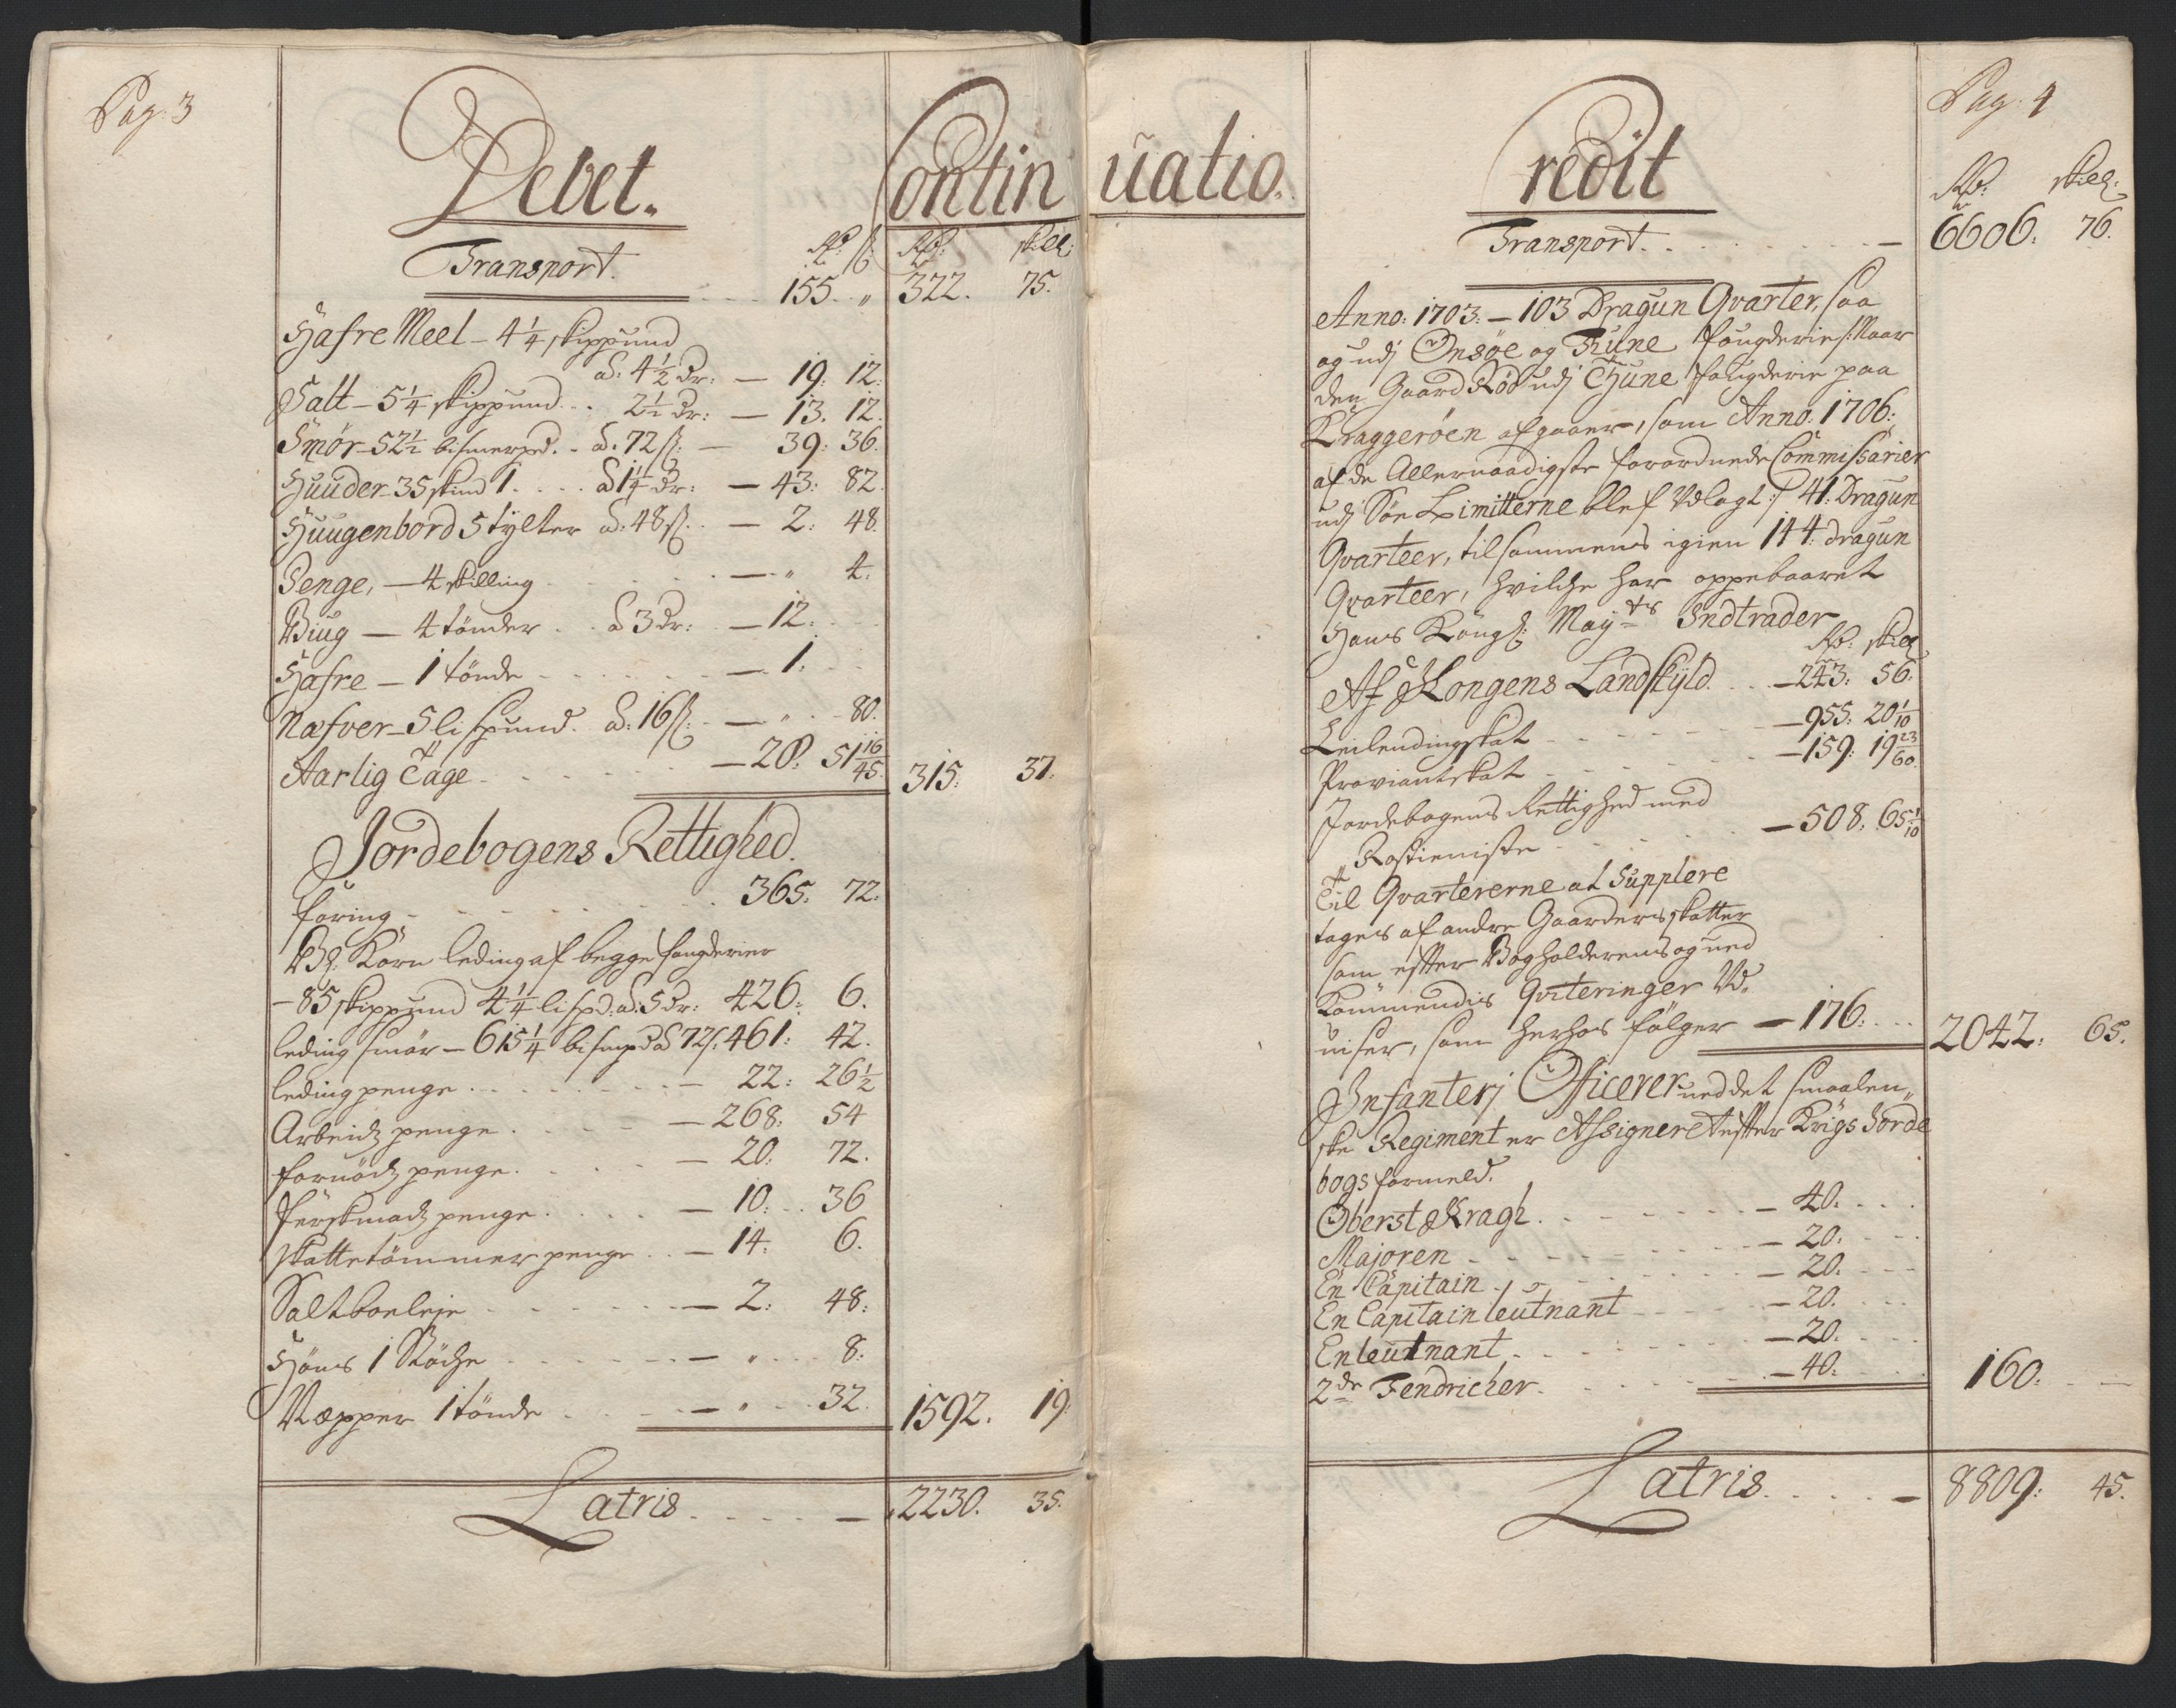 Pag: 3
Debet.
Contin
Rd: ß: Rd: skill:
Transport. 155. „ 322. 75.
Hafre Meel – 4¼ skippund
à: 4½ Dr: – 19: 12:
Salt – 5¼ skippund . . 2½ Dr: – 13. 12.
Smør – 52½ bismerpd. - à. 72 ß: – 39: 36.
Huuder 35 skind 1 . . . à 1¼ Dr: – 43: 82.
Huugenbord 5 tylter à: 48 ß. – 2: 48.
Penge, – 4 skilling – „ 4.
Biug – 4 tønder . . à 3 Dr: – 12:
Hafre – 1 tønde – 1.
Næfver – 5 lispund. à: 16 ß: – „ 80.
Aarlig Tage – 28: 51 16/45. 315: 37.
Jordebogens Rettighed.
Foring 365. 72:
Bg: Korn leding af begge fougderier
– 85 skippund 4¼ lispd. à. 5 Dr: 426: 6.
leding smør – 615¼ bismpd à 72 ß: 461: 42.
leding penge – 22: 26½
Arbeids penge – 268: 54
fornøds penge – 20: 72.
ferskmads penge – 10: 36
skattetømmer penge – 14: 6.
Saltboeleje – 2: 48:
Høns 1 Støche – „ 8:
Næpper 1 tønde – „ 32. 1592. 19.
Latris – 2230. 35.
Pag: 4
uatio.
Credit
Rd: skill:
Transport. – 6606. 76.
Anno: 1703: – 103 Dragun Qvarter, saa
og udj Onsøe og Tune fougderie /: Naar
den Gaard Rød udj Thune fougderie paa
Kraggerøen afgaaer, som Anno: 1706:
af de Allernaadigste forordnede Commissarier
udj Søe Limitterne blef Udlagt :/ 41. Dragun
Qvarteer, tilsammens igien 144: dragun
Qvarteer, hvilche har oppebaaret
Hans Kongl: Mayts Indtrader
Rd: skill
Af Kongens Landskyld – 243: 56.
Leilendingskat – 955: 20 1/10
Proviantskat – 159: 19 23/60.
Jordebogens Rettighed med
Rostieniste – 508. 65 1/10
Til Qvartererne at Supplere
tages af andre Gaarders skatter
som efter Bogholderens og ved
Kommendis Qviteringer Ud„
viser, som herhos følger – 176: 2042: 65.
Infanterj Officerer ved det smaalen„
ske Regiment er Assigneret efter Krigs Jorde
bogs formeld.
Oberst Kragh – 40.
Majoren – 20:
En Capitain – 20.
En Capitain leutnant – 20.
En leutnant – 20:
2de Fendricher – 40: 160.
Latris – 8809: 45.